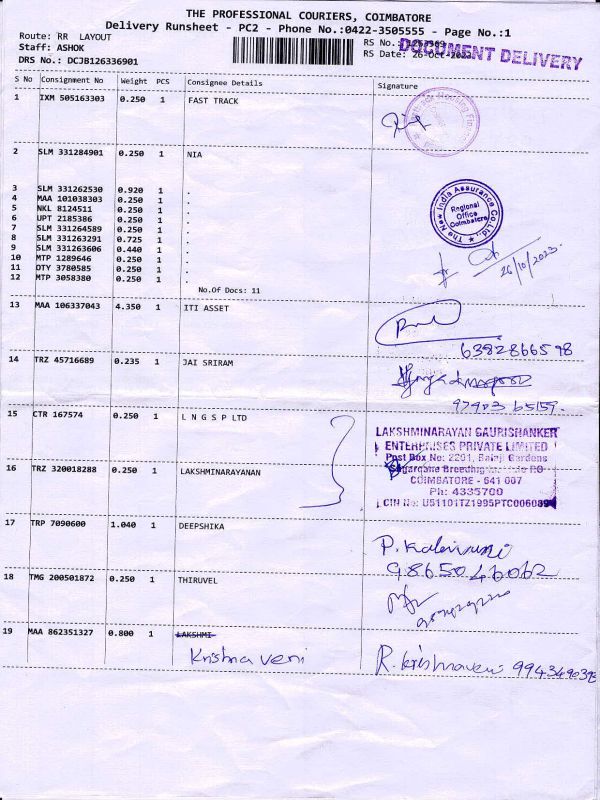 THE PROFESSIONAL COURIERS, COIMBATORE
Delivery Runsheet - PC2 - Phone No.:0422-3505555 - Page No.:1
Route: RR LAYOUT
Staff: ASHOK
DRS No.: DCJB126336901
RS No.:
RS Date: 26-Oct-2023
DOCUMENT DELIVERY
S No Consignment No Weight PCS Consignee Details Signature
1 IXM 505163303 0.250 1 FAST TRACK
2 SLM 331284901 0.250 1 NIA
3 SLM 331262530 0.920 1 .
4 MAA 101038303 0.250 1 .
5 NKL 8124511 0.250 1 .
6 UPT 2185386 0.250 1 .
7 SLM 331264589 0.250 1 .
8 SLM 331263291 0.725 1 .
9 SLM 331263606 0.440 1 .
10 MTP 1289646 0.250 1 .
11 OTY 3780585 0.250 1 .
12 MTP 3058380 0.250 1 .
No.Of Docs: 11
The New India Assurance Co. Ltd.
Regional
Office
Coimbatore
26/10/2023.
13 MAA 106337043 4.350 1 ITI ASSET
6382866598
14 TRZ 45716689 0.235 1 JAI SRIRAM
97903 65159.
15 CTR 167574 0.250 1 L N G S P LTD
LAKSHMINARAYAN GAURISHANKER
ENTERPRISES PRIVATE LIMITED
Post Box No: 2201, Balaji Gardens
Sugarcane Breeding
COIMBATORE - 641 007
Ph: 4335700
CIN No: U51101TZ1995PTC006089
16 TRZ 320018288 0.250 1 LAKSHMINARAYANAN
17 TRP 7090600 1.040 1 DEEPSHIKA
9865046062
18 TMG 200501872 0.250 1 THIRUVEL
19 MAA 862351327 0.800 1 LAKSHMI
Krishna veni
R. krishnaveni 9943490393